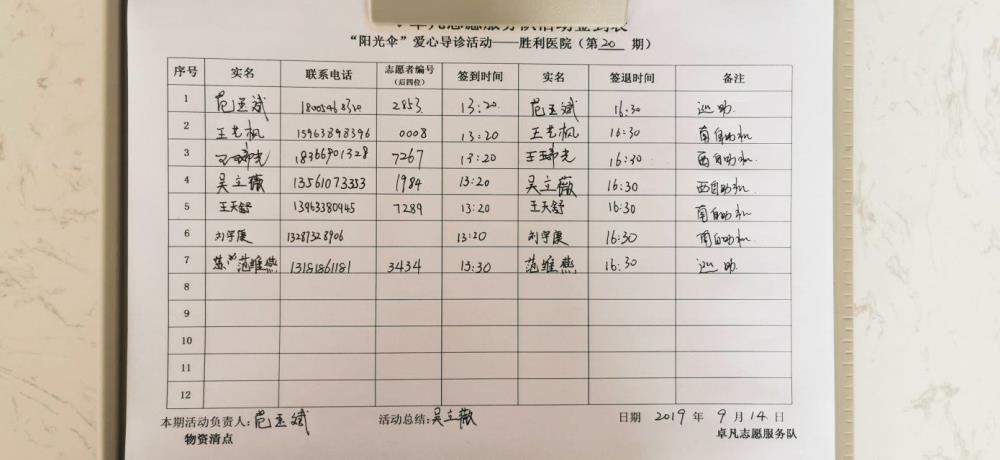 卓凡志愿服务队活动签到表
“阳光伞”爱心导诊活动——胜利医院（第20期）
序号 实名 联系电话 志愿者编号（后四位） 签到时间 实名 签退时间 备注
1 2853 13:20 16:30 巡助
2 王艺枫 15963898396 0008 13:20 王艺枫 16:30 南自助机
3 18366901328 7267 13:20 16:30 西自助机
4 吴立薇 13561073353 1984 13:20 吴立薇 16:30 西自助机
5 王天舒 13963380945 7289 13:20 王天舒 16:30 南自助机
6 13287328906 13:20 16:30 南自助机
7 范维燕 13181861181 3434 13:30 范维燕 16:30 巡助
8
9
10
11
12
本期活动负责人: 活动总结:吴立薇 日期 2019 年 9 月 14 日
物资清点 卓凡志愿服务队